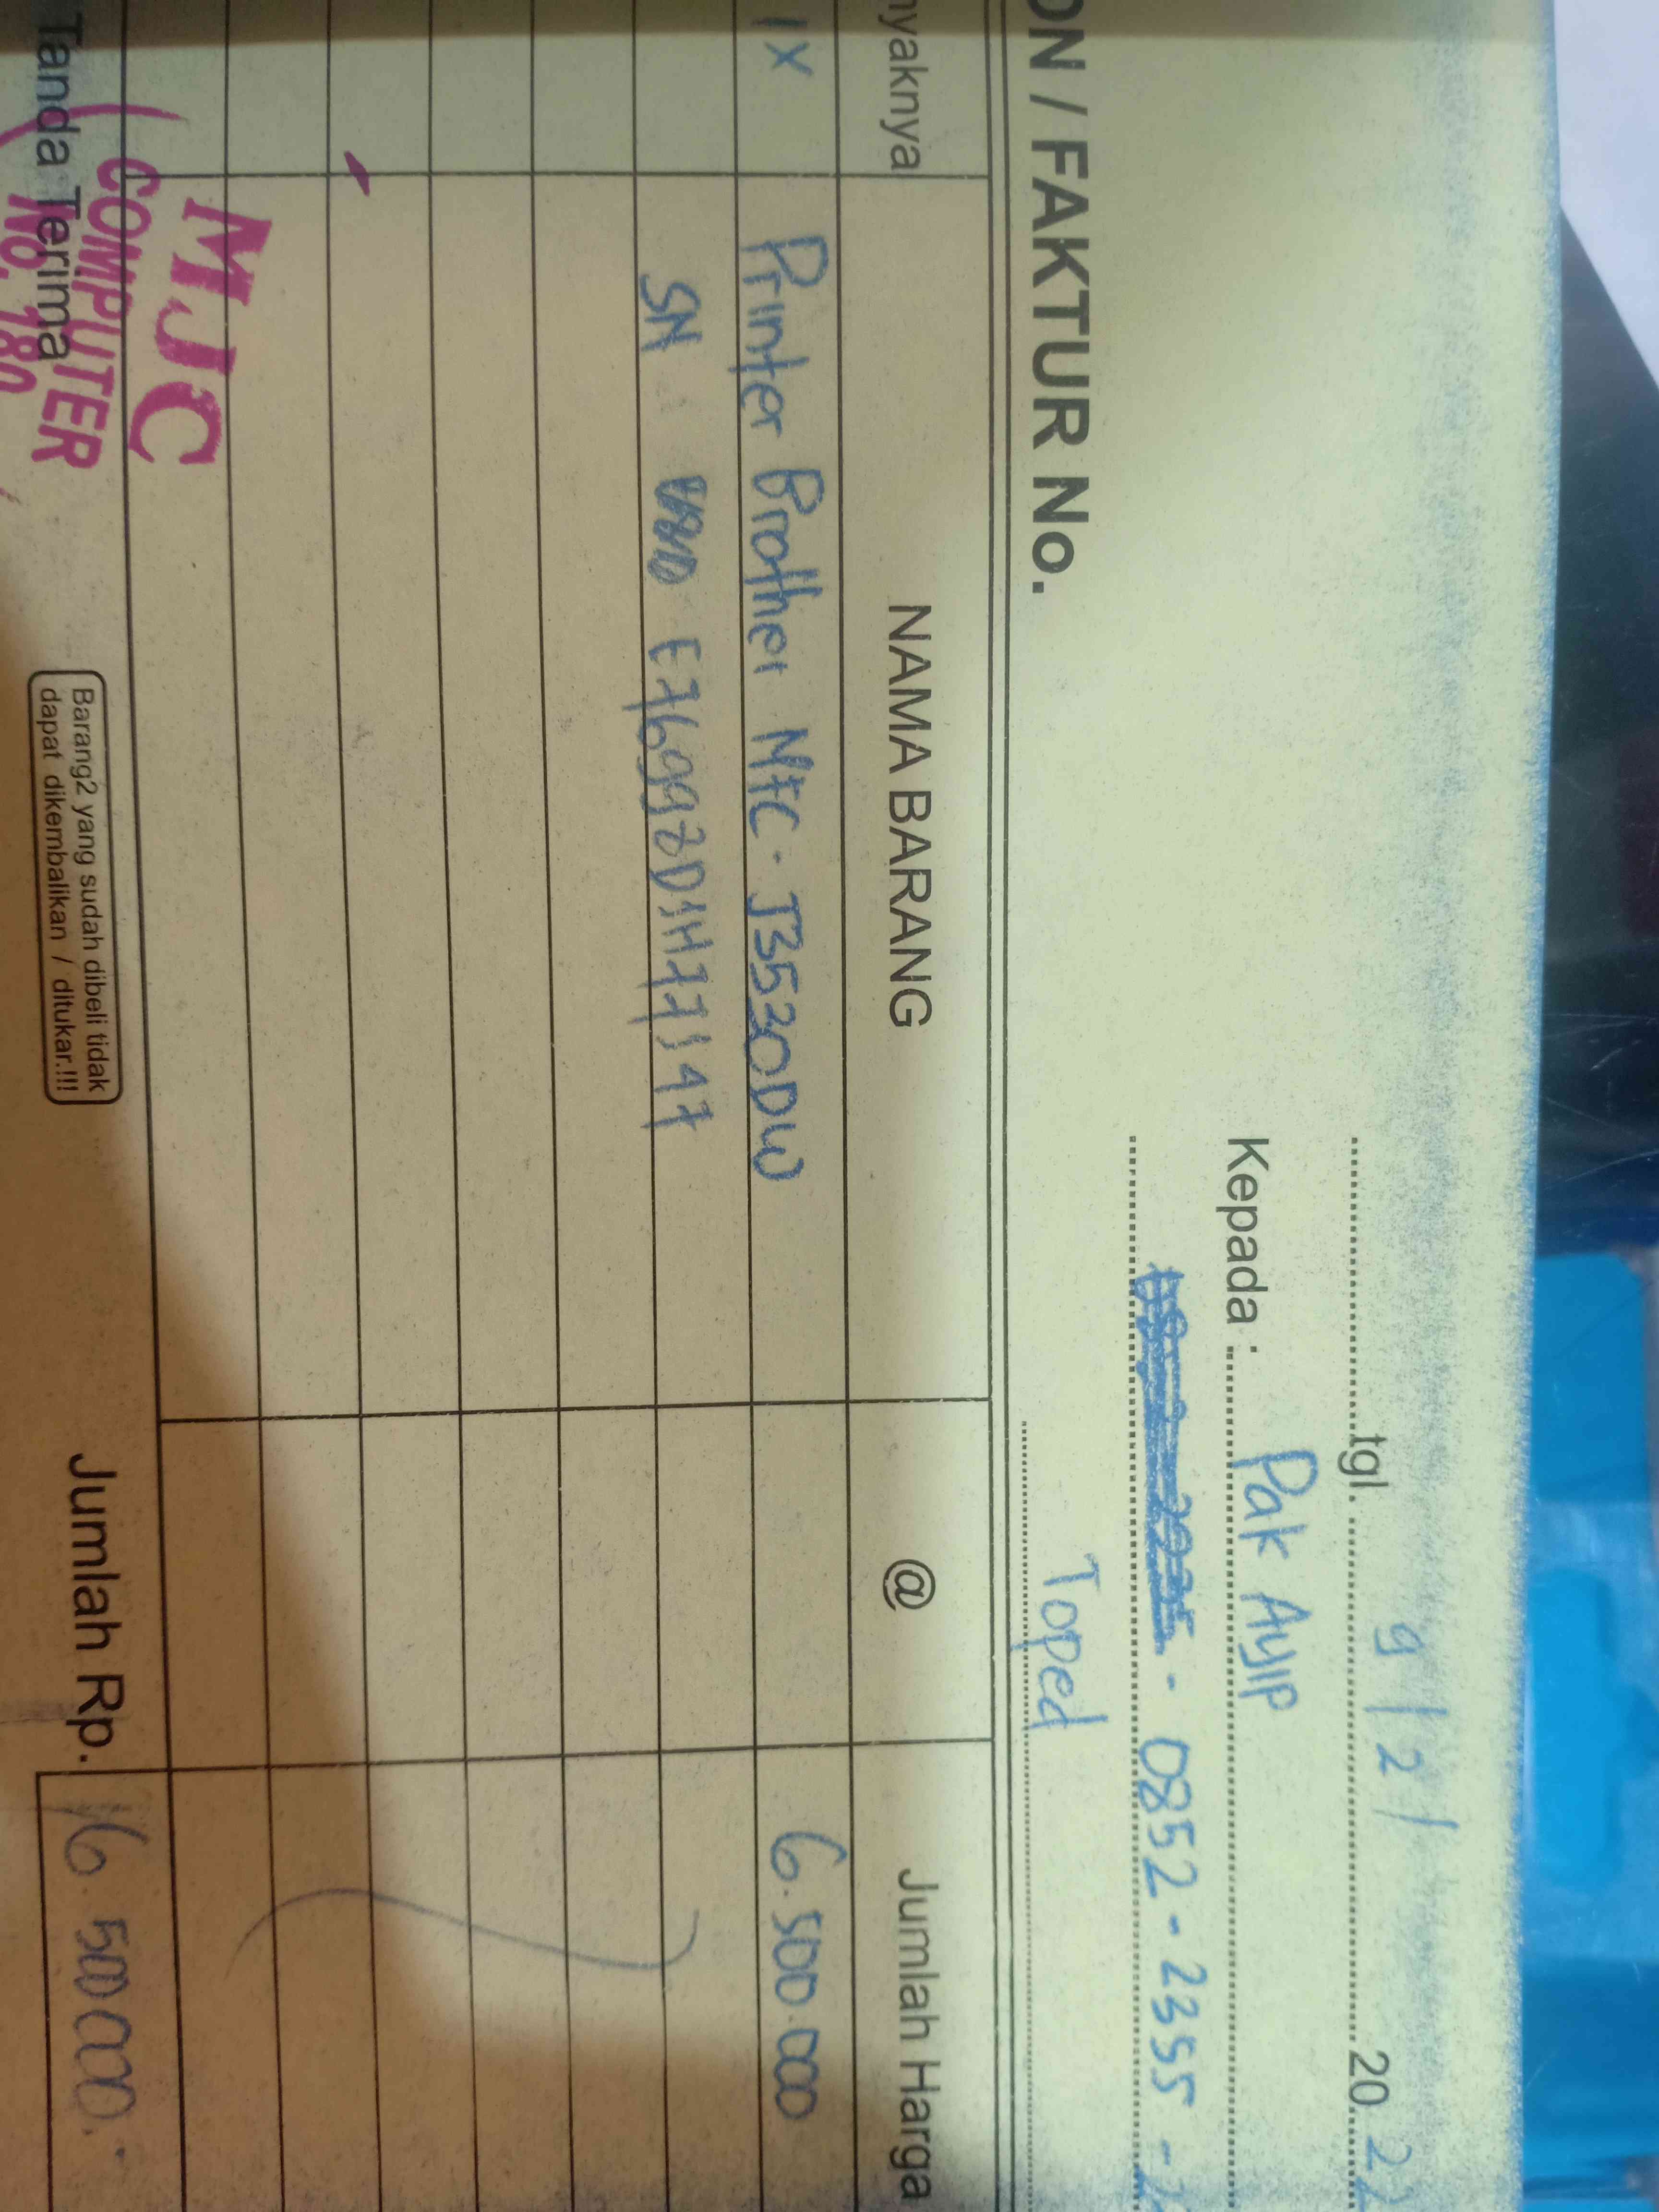 tgl. 9/2/ 2022
Kepada : Pak Ayip
- 0852-2355-
Toped
ON / FAKTUR No.
nyaknya NAMA BARANG @ Jumlah Harga
1x Printer Brother Mfc-J3530DW 6.500.000
SN E76992D1H77147
MJC
COMPUTER
No. 780
Tanda Terima
Barang2 yang sudah dibeli tidak
dapat dikembalikan / ditukar.!!!
Jumlah Rp. 6.500.000.-